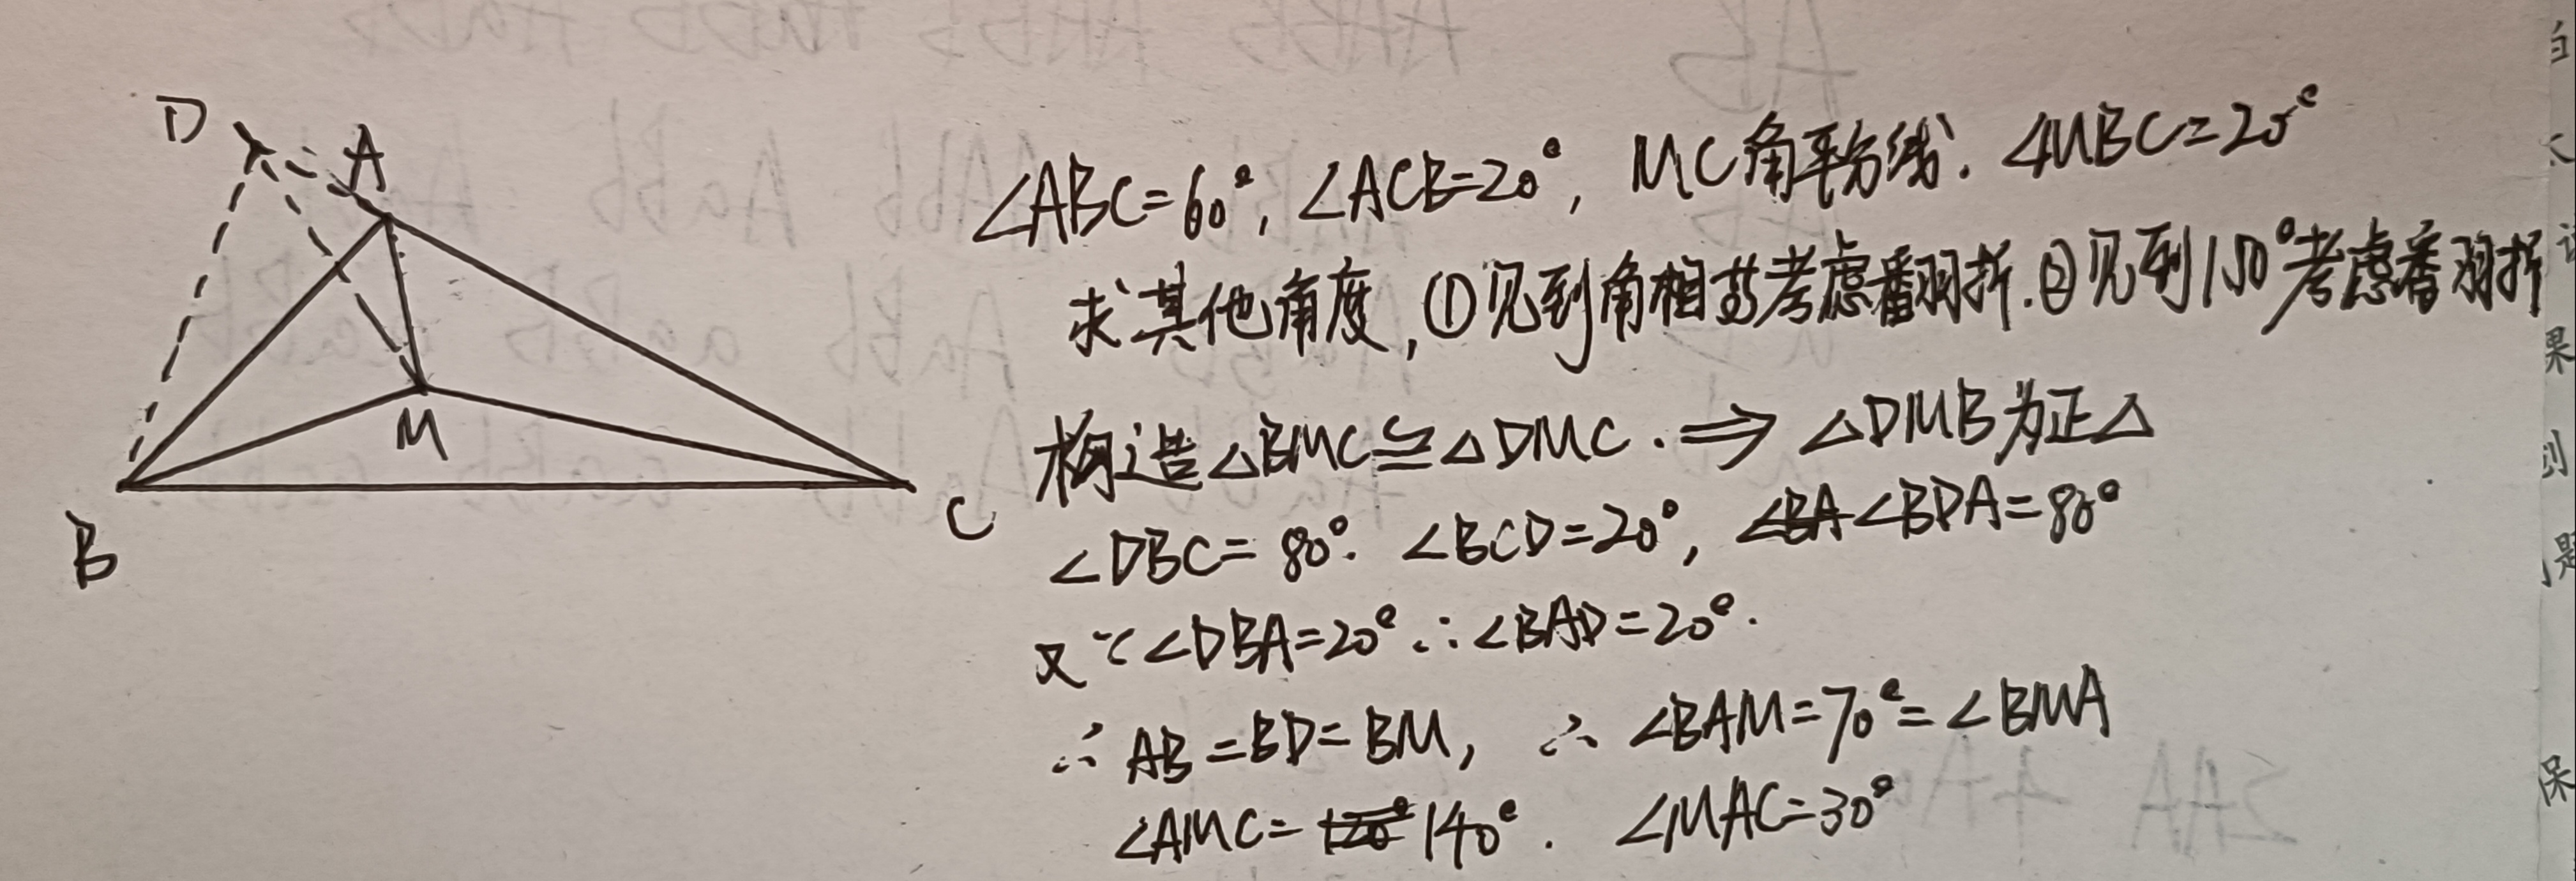 D
A
M
B
C
∠ABC=60°, ∠ACB=20°, MC角平分线. ∠MBC=20°
求其他角度, ①见到角相等考虑翻折. ②见到150°考虑翻折
构造△BMC≌△DMC. ⇒ △DMB为正△
∠DBC=80°. ∠BCD=20°, ∠BDA=80°
又∵∠DBA=20° ∴∠BAD=20°.
∴ AB=BD=BM, ∴ ∠BAM=70°=∠BMA
∠AMC=140°. ∠MAC=30°
果
创
题
保